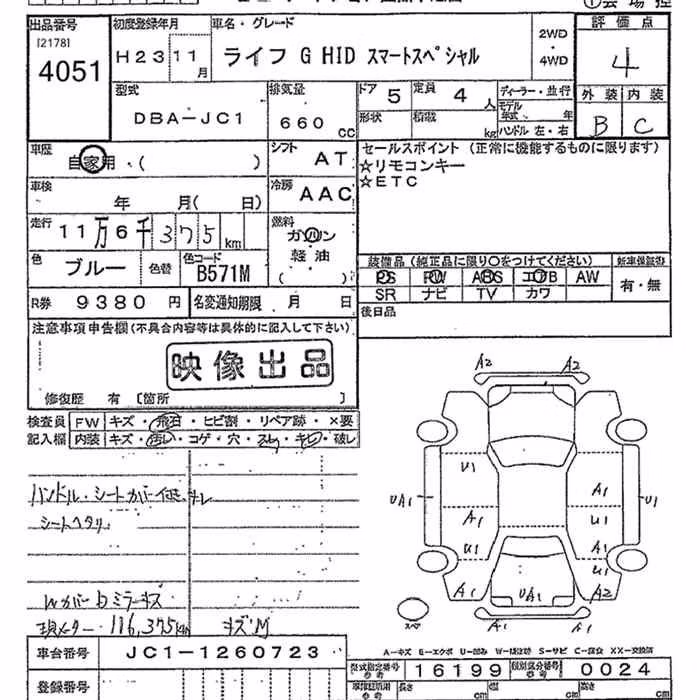 出品番号
[2178]
4051
初度登録年月
H23 11月
車名・グレード
ライフ G HID スマートスペシャル
2WD
・
4WD
評価点
4
外装 内装
B C
型式
DBA-JC1
排気量
660 cc
ドア 5
定員 4 人
形状
積載 kg
ディーラー・並行
モデル年式 年
ハンドル 左・右
車歴
自家用・( )
シフト AT
セールスポイント (正常に機能するものに限ります)
☆リモコンキー
☆ETC
車検
年 月( 日)
冷房 AAC
走行
11万6千375km
燃料
ガソリン
軽油
( )
色 ブルー
色替
色コード
B571M
装備品 (純正品に限り〇をつけてください)
新車保証書
PS PW ABS エアB AW
有・無
SR ナビ TV カワ
R券 9380 円
名変通知期限 月 日
後日品
注意事項申告欄(不具合内容等は具体的に記入して下さい)
映像出品
修復歴 有 〔箇所 〕
検査員
記入欄
FW キズ・飛石・ヒビ割・リペア跡・×要
内装 キズ・汚レ・コゲ・穴・スレ・キレ・破レ
ハンドル・シートカバー
シートヘタリ
ミラーキズ
現メーター 116,375km
A2 A2
U1
UA1 A1 U1
A1 U1
U1 A1
U1
A1 UA1 A2
A1 A2
スペア
A-キズ E-エクボ U-凹み W-補修跡 S-サビ C-腐食 XX-交換済
車台番号 JC1-1260723
型式指定番号 16199
類別区分番号 0024
登録番号
長さ cm
幅 cm
高さ cm